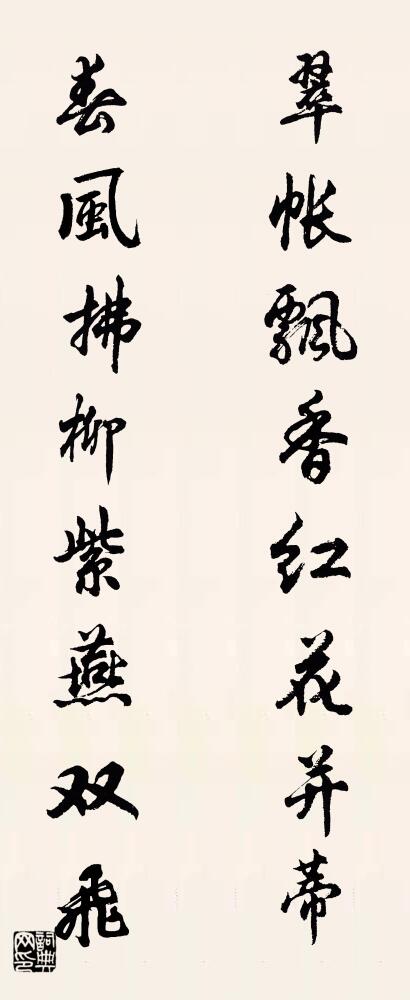 翠帐飘香红花并蒂
春風拂柳紫燕双飛
詞典网印